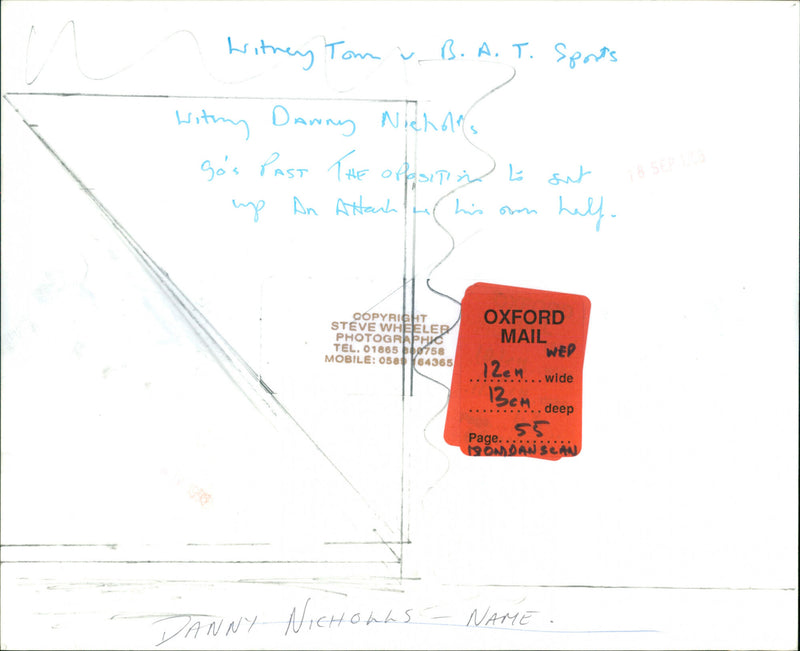 Witney Town v B. A. T. Sports
Witney Danny Nicholls
go's Past The oposition to set
up An Attack in his own half.
18 SEP 200
COPYRIGHT
STEVE WHEELER
PHOTOGRAPHIC
TEL. 01865 880758
MOBILE: 0589 164365
OXFORD
MAIL
WED
12cm wide
13cm deep
Page 55
DANNY NICHOLLS - NAME.